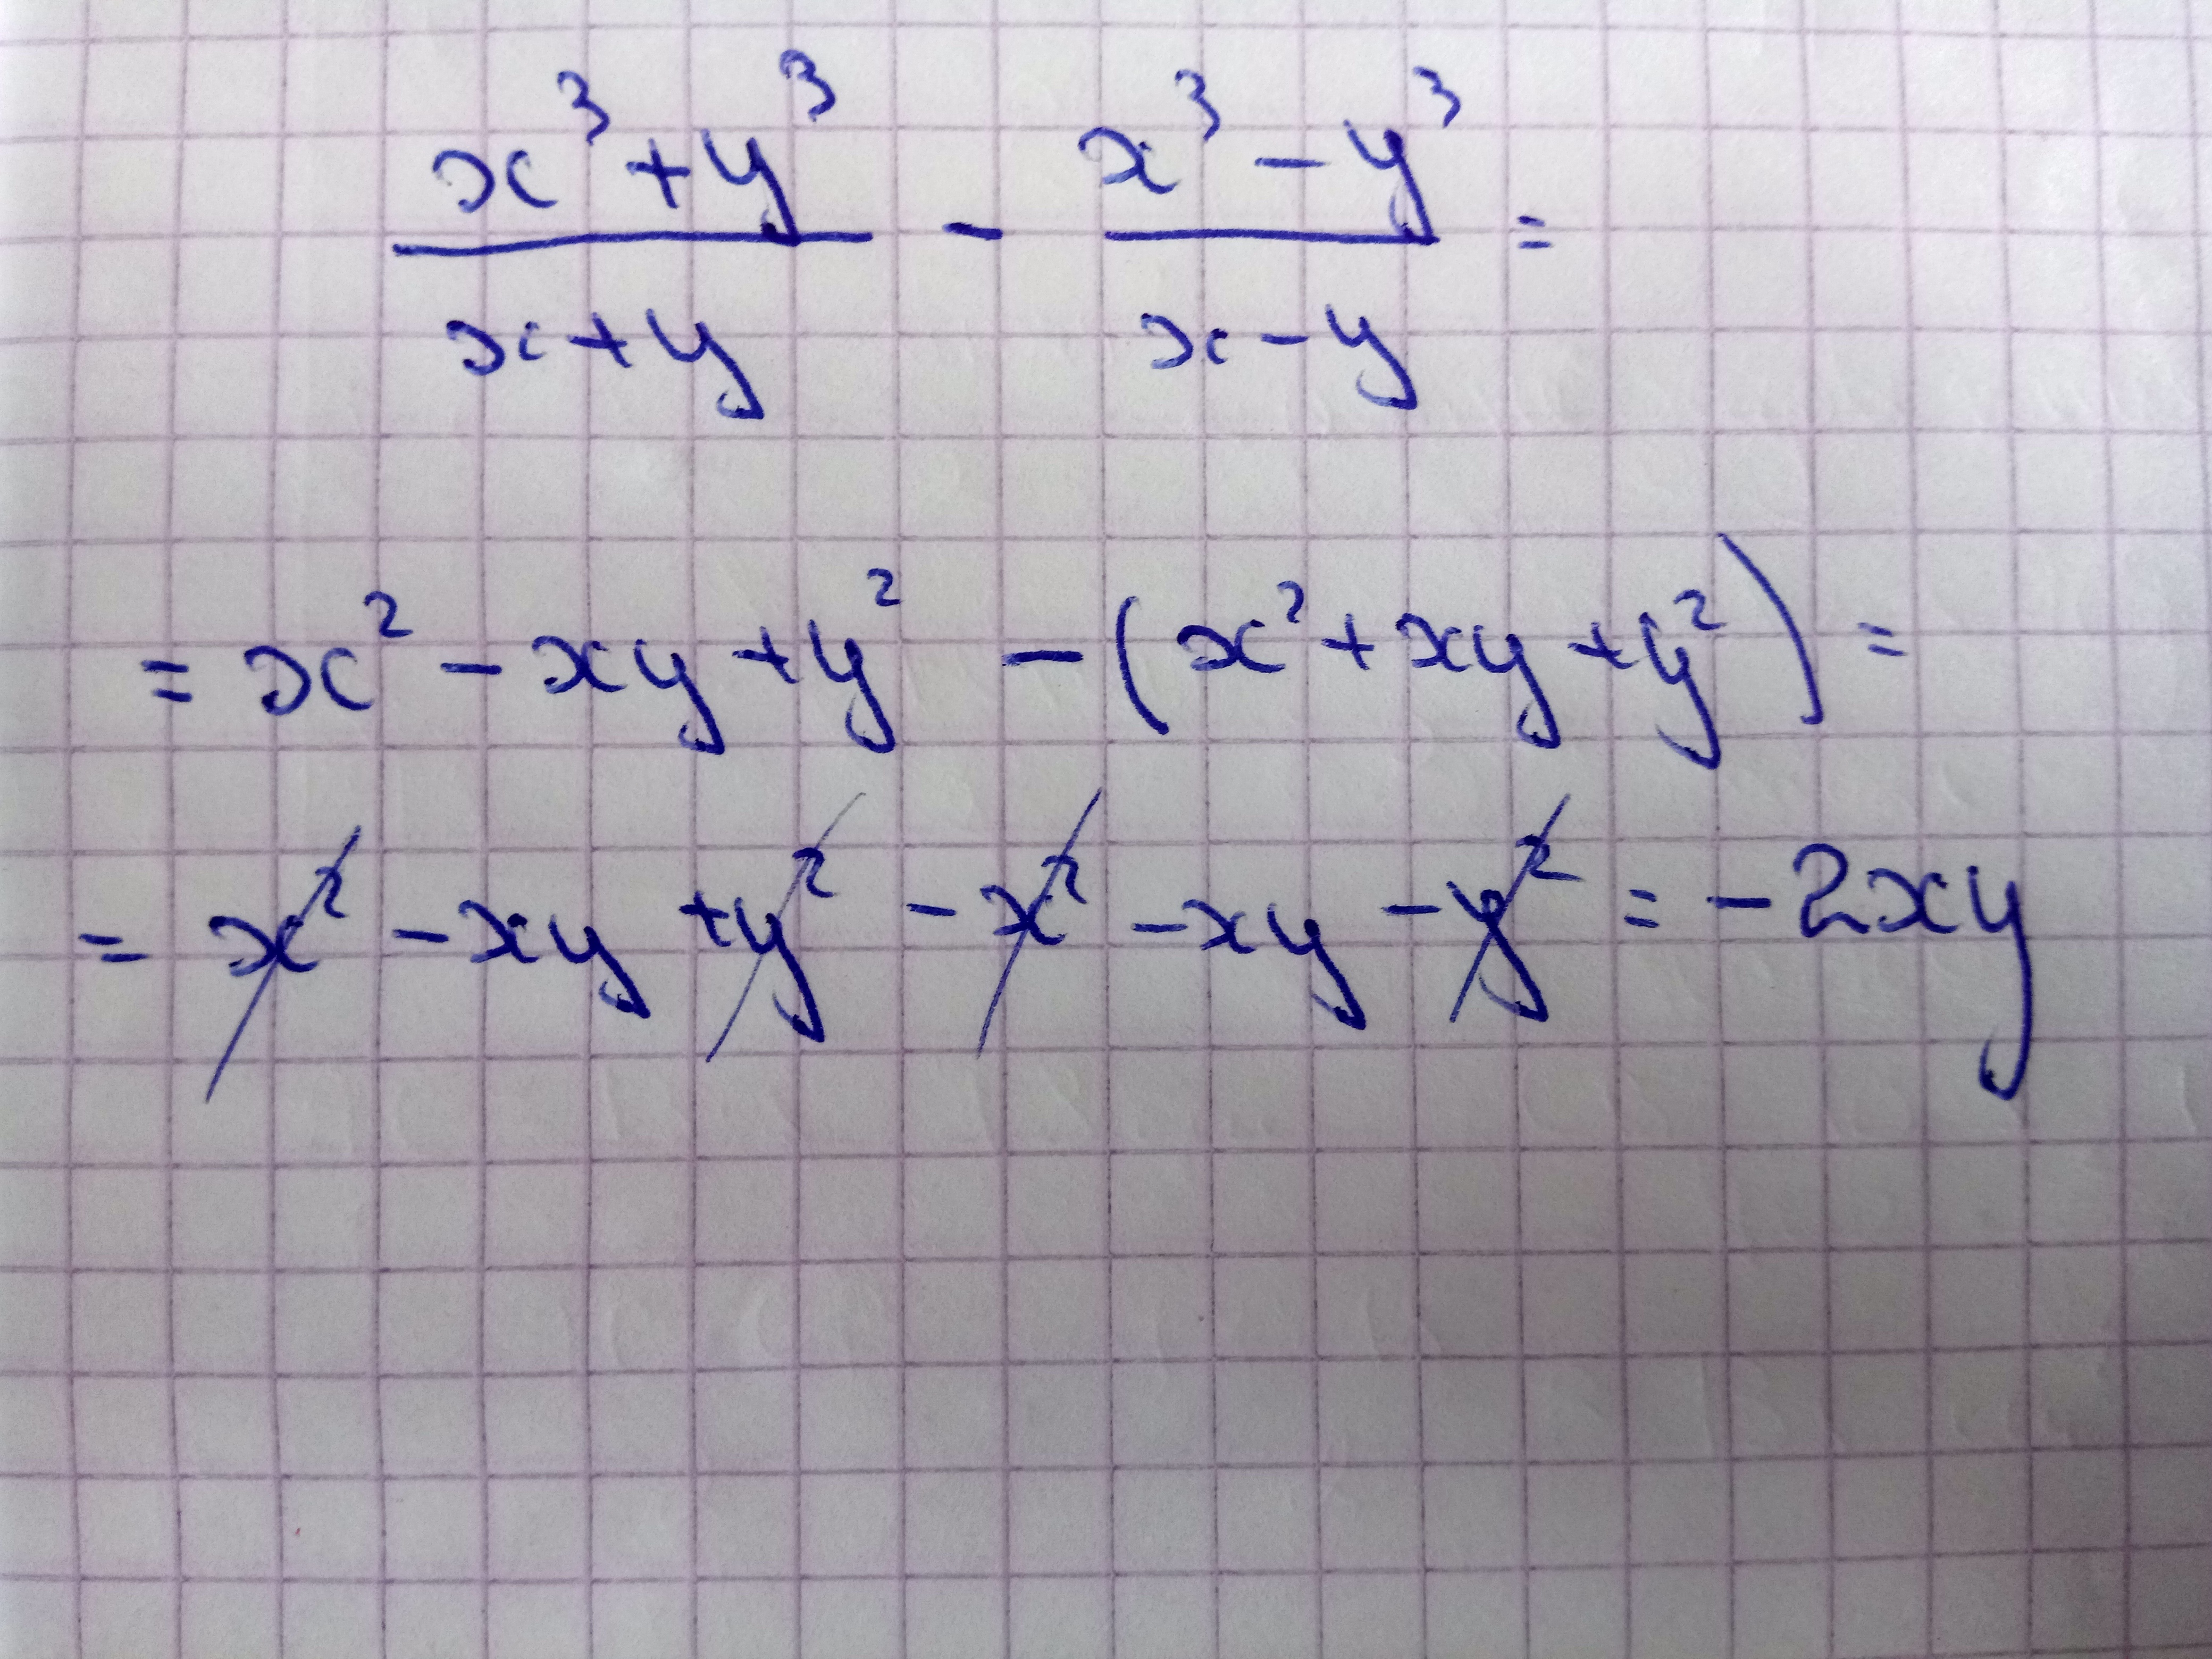 x³+y³/x+y - x³-y³/x-y =
= x² - xy + y² - (x² + xy + y²) =
= x² - xy + y² - x² - xy - y² = -2xy